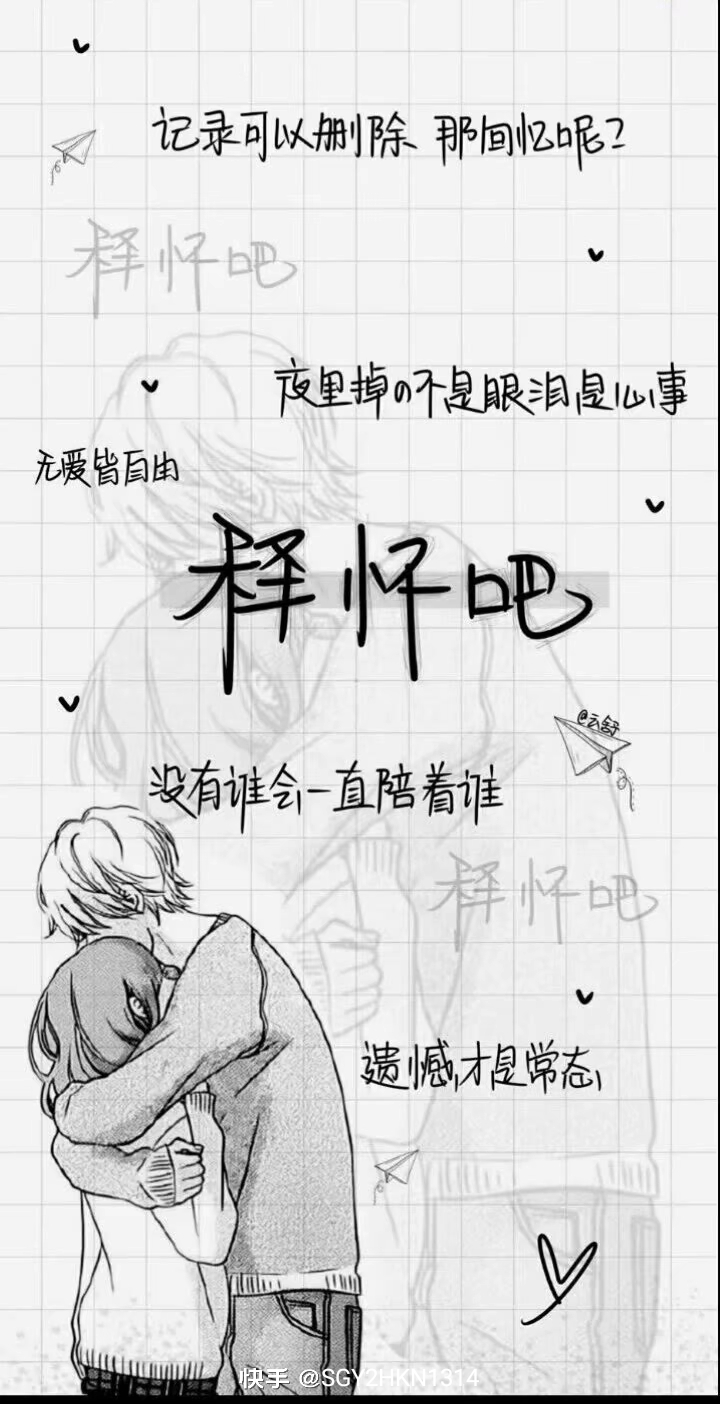 记录可以删除 那回忆呢?
释怀吧
夜里掉の不是眼泪是心事
无爱皆自由
释怀吧
@云舒
没有谁会一直陪着谁
释怀吧
遗憾才是常态
快手 @SGY2HKN1314